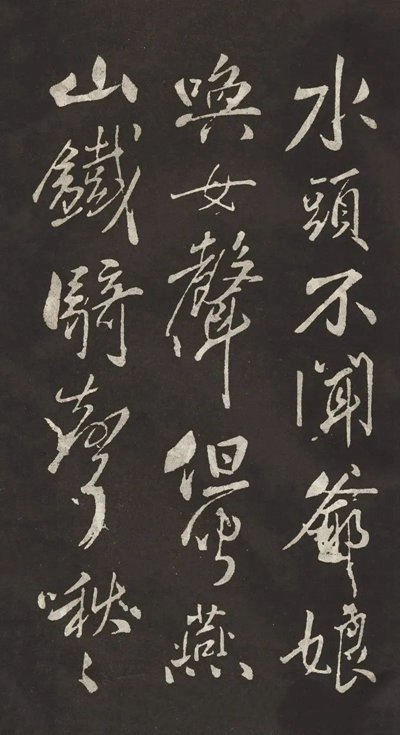 水頭不聞爺娘
喚女聲但聞燕
山鐵騎聲啾〻